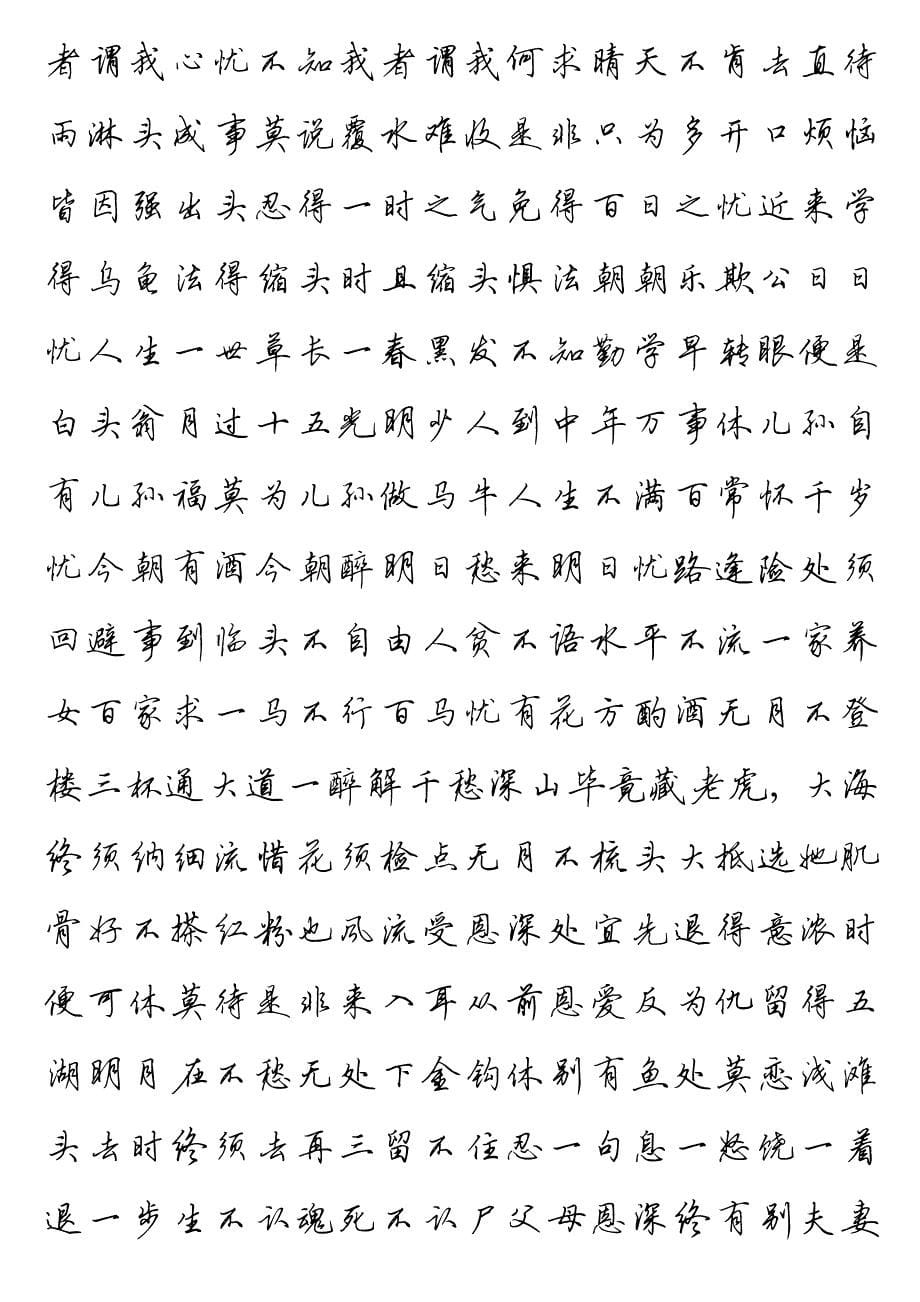 者谓我心忧不知我者谓我何求晴天不肯去直待
雨淋头成事莫说覆水难收是非只为多开口烦恼
皆因强出头忍得一时之气免得百日之忧近来学
得乌龟法得缩头时且缩头惧法朝朝乐欺公日日
忧人生一世草长一春黑发不知勤学早转眼便是
白头翁月过十五光明少人到中年万事休儿孙自
有儿孙福莫为儿孙做马牛人生不满百常怀千岁
忧今朝有酒今朝醉明日愁来明日忧路逢险处须
回避事到临头不自由人贫不语水平不流一家养
女百家求一马不行百马忧有花方酌酒无月不登
楼三杯通大道一醉解千愁深山毕竟藏老虎，大海
终须纳细流惜花须检点无月不梳头大抵选她肌
骨好不搽红粉也风流受恩深处宜先退得意浓时
便可休莫待是非来入耳从前恩爱反为仇留得五
湖明月在不愁无处下金钩休别有鱼处莫恋浅滩
头去时终须去再三留不住忍一句息一怒饶一着
退一步生不认魂死不认尸父母恩深终有别夫妻